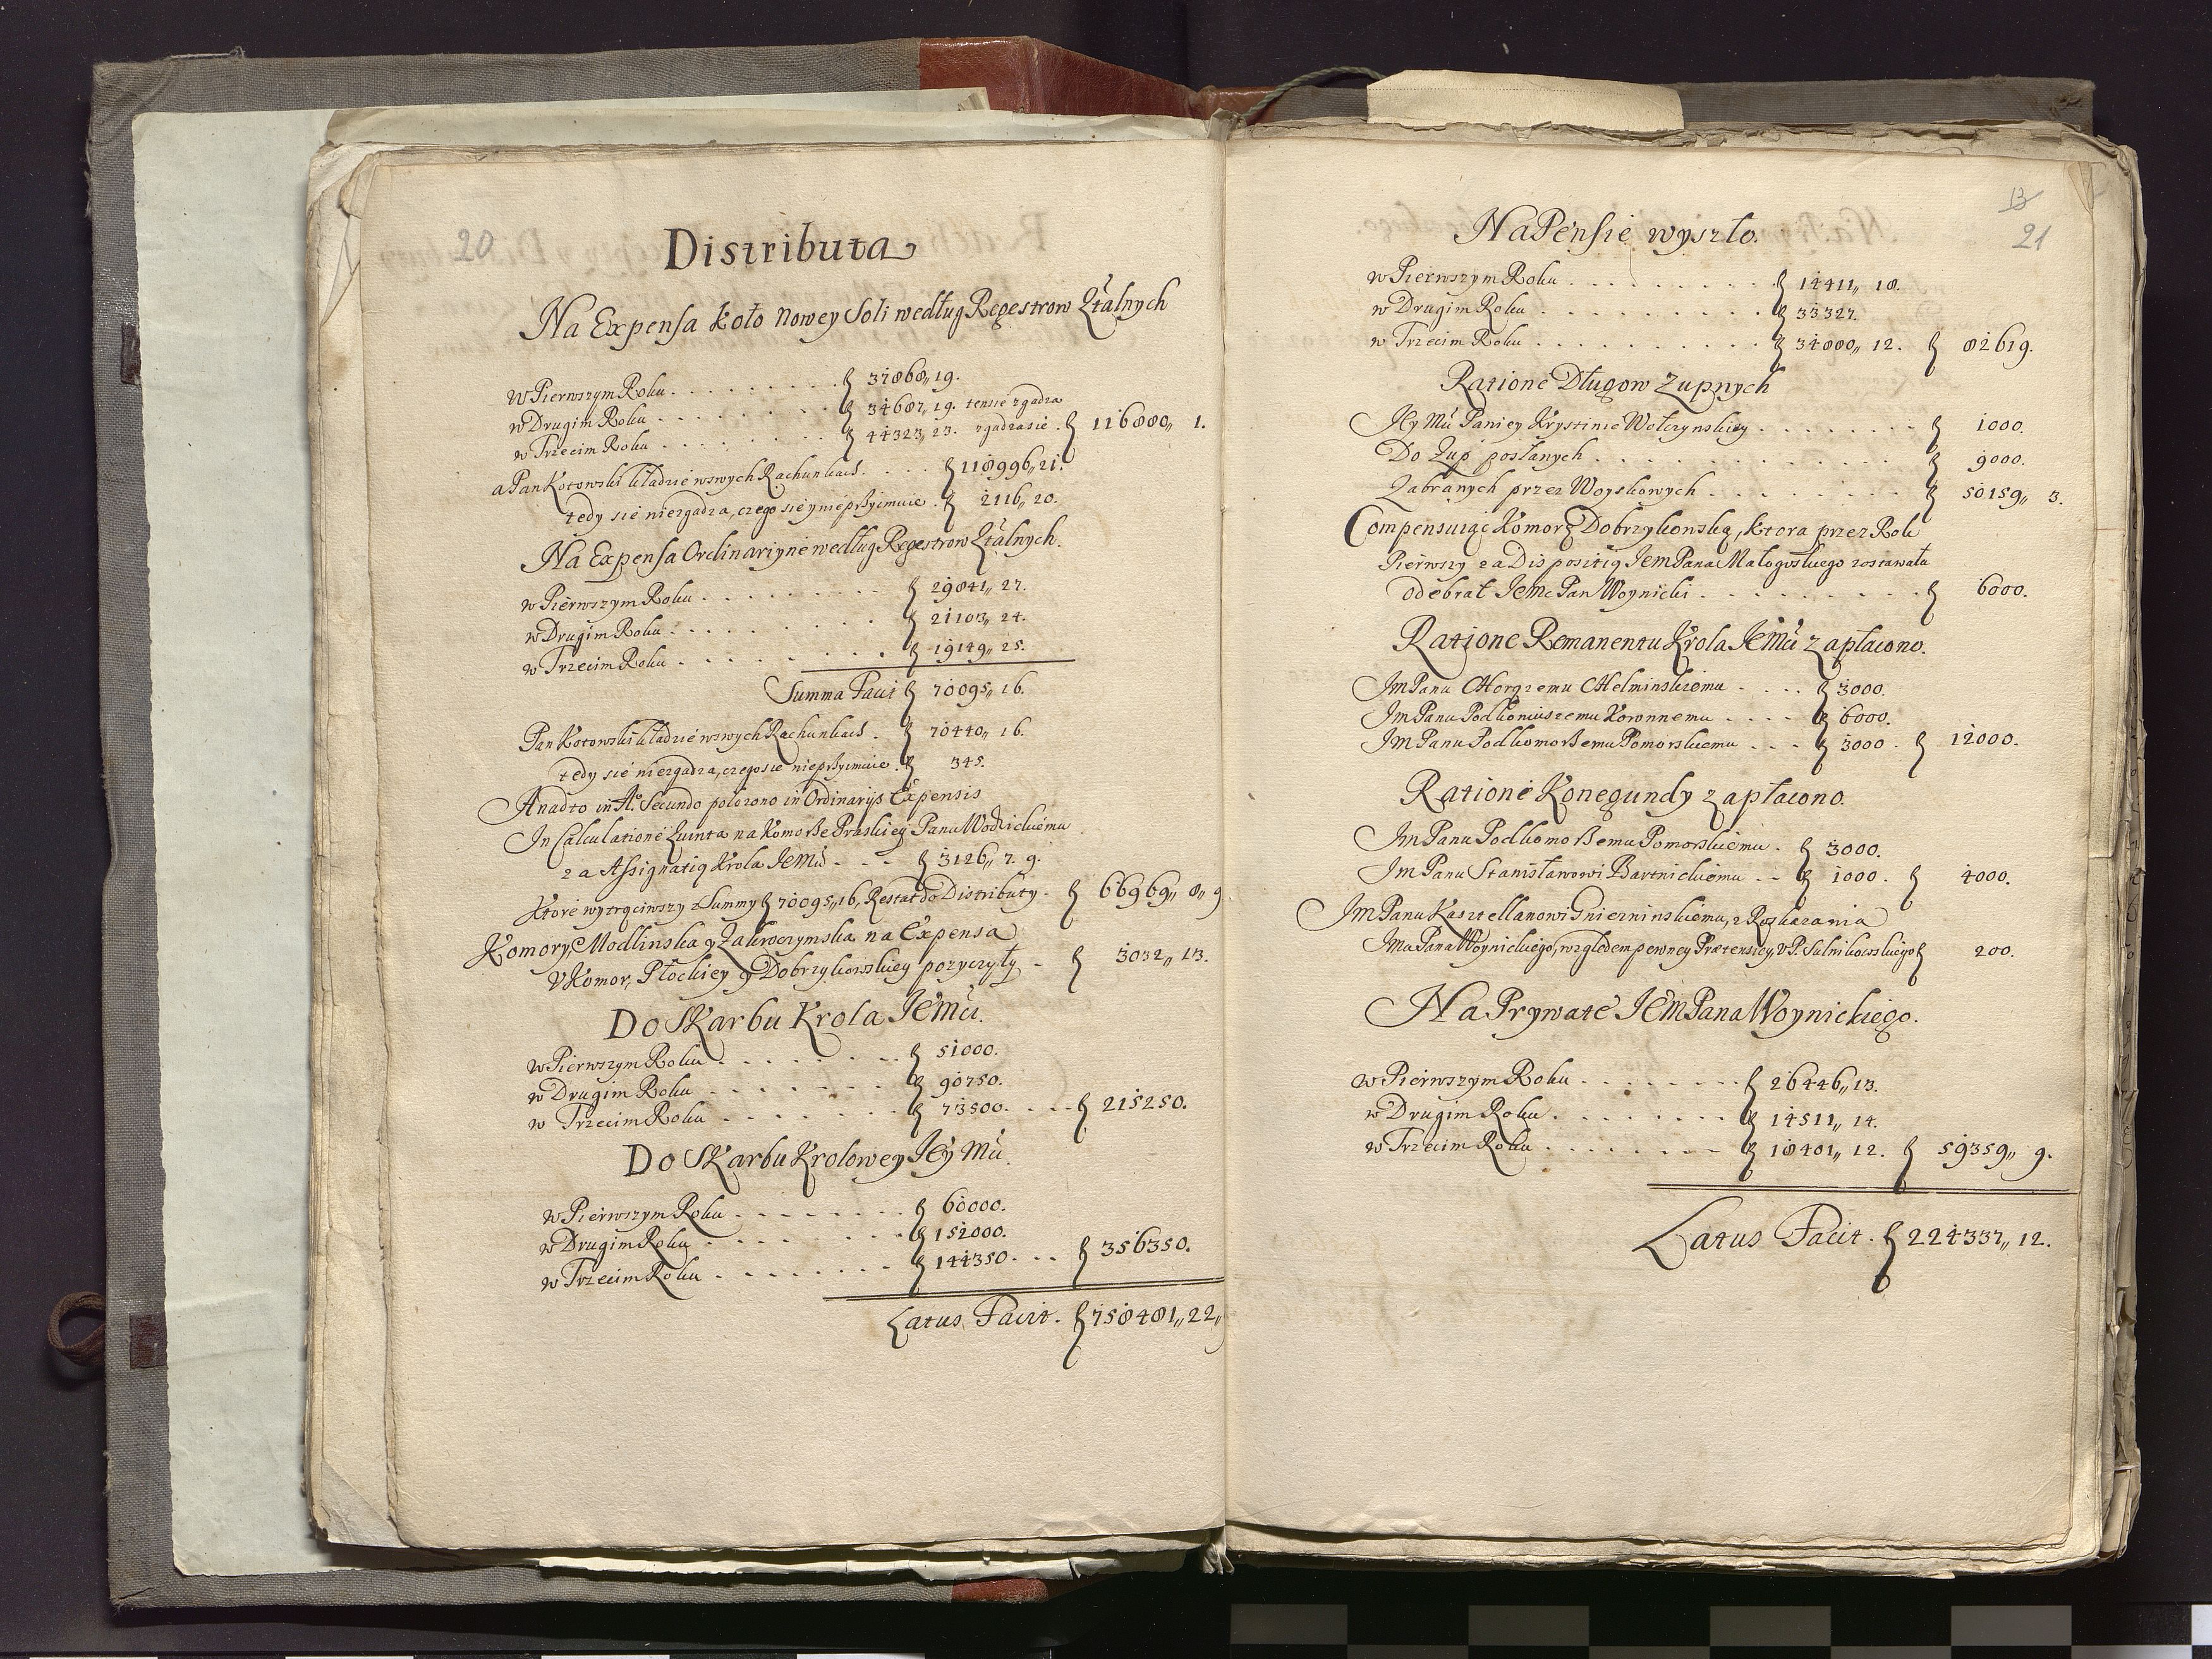 20
Distributa
Na Expensa koło Nowey Soli według Regestrow Żtalnych
w Pierwszym Roku . . . . . . . . . 37868,, 19.
w Drugim Roku . . . . . . . . . 34687,, 19. tensię zgadza
w Trzecim Roku . . . . . . . . 44323,, 23. zgadzasię . 116880,, 1.
a Pan Kotowski kładzie wswych Rachunkach . . . . 118996,, 21.
tedy się niezgadza, czego się y nieprzyimuie . 2116,, 20.
Na Expensa Ordinaryine według Regestrow Żtalnych.
w Pierwszym Roku . . . . . . . . 29841,, 27.
w Drugim Roku . . . . . . . . 21103,, 24.
w Trzecim Roku . . . . . . . . 19149,, 25.
Summa Facit 70095,, 16.
Pan Kotowski kładzie wswych Rachunkach . 70440,, 16.
tedy się niezgadza, czego się nieprzyimuie . 345.
A nadto in Ao. Secundo położono in Ordinarijs Expensis
In Calculatione Quinta na Komorze Praskiey Panu Wodzickiemu
za Assignatią Krola JeMci - - - 3126,, 7. 9.
Ktore wytrąciwszy z Summy 70095,, 16, Restat do Distributy - 66969,, 8,, 9
Komory, Modlinska y Zakroczymska na Expensa
V Komor, Płockiey y Dobrzykowskiey pozyczyły - 3032,, 13.
Do Skarbu Krola JeMci.
w Pierwszym Roku . . . . . . . . 51000.
w Drugim Roku . . . . . . . . 90750.
w Trzecim Roku . . . . . . . . 73500. . . . 215250.
Do Skarbu Krolowey Jey Mci.
w Pierwszym Roku . . . . . . . . 60000.
w Drugim Roku . . . . . . . . 152000.
w Trzecim Roku . . . . . . . . 144350 . . . 356350.
Latus Facit . 758481,, 22,,
13
21
Na Pensie wyszło.
w Pierwszym Roku . . . . . . . . . . 14411,, 18.
w Drugim Roku . . . . . . . . . . 33327.
w Trzecim Roku . . . . . . . . . . 34880,, 12. 82619.
Ratione Długow Żupnych
Jey Mci Paniey Krystinie Wołczynskiey . . . . . . . . 1000.
Do Żup posłanych . . . . . . . . . . . . 9000.
Zabranych przez Woyskowych . . . . . . . . . 50159,, 3.
Compensuiąc Komorę Dobrzykonską, ktora przez Rok
Pierwszy za Dispositią Jem Pana Małogoskiego zostawała
odebrał Jemc Pan Woynicki . . . . . . . . . 6000.
Ratione Remanentu Krola JeMci zapłacono.
Jm Panu Chorązemu Chelminskiemu . . . . 3000.
Jm Panu Podkoniuszemu Koronnemu . . . . 6000.
Jm Panu Podkomorzemu Pomorskiemu . . . 3000 . 12000.
Ratione Konegundy zapłacono.
Jm Panu Podkomorzemu Pomorskiemu . 3000.
Jm Panu Stanisławowi Bartnickiemu - - 1000 . 4000.
Jm Panu Kasztellanowi Gnieznienskiemu, z Roskazania
Jmci Pana Woynickiego, względem pewney Prætensiey, v P. Sulnikowskiego 200.
Na Prywatę JemPana Woynickiego.
w Pierwszym Roku . . . . . . . . 26446,, 13.
w Drugim Roku . . . . . . . . 14511,, 14.
w Trzecim Roku . . . . . . . . 18401,, 12. 59359,, 9.
Latus Facit . 224337,, 12.